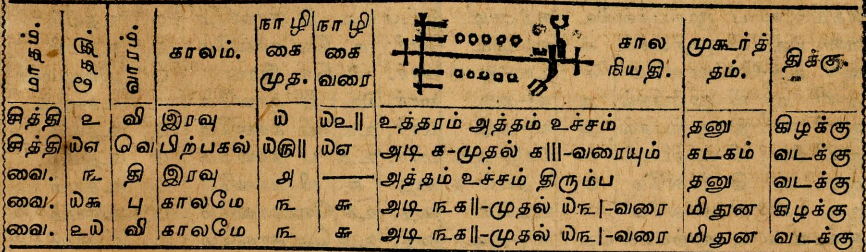 மாதம். தேதி. வாரம். காலம். நாழிகை முத. நாழிகை வரை கால நியதி. முகூர்த்தம். திக்கு.
சித்தி ௨ வி இரவு ௰ ௰௨॥ உத்தரம் அத்தம் உச்சம் தனு கிழக்கு
சித்தி ௰எ வெ பிற்பகல் ௰௫॥ ௰எ அடி க-முதல் க|||-வரையும் கடகம் வடக்கு
வை. ௩ தி இரவு அ — அத்தம் உச்சம் திரும்ப தனு வடக்கு
வை. ௰௬ பு காலமே ௩ ௬ அடி ௩க॥-முதல் ௰௩|-வரை மிதுன கிழக்கு
வை. ௨௰ வி காலமே ௩ ௬ அடி ௩க॥-முதல் ௰௩|-வரை மிதுன வடக்கு